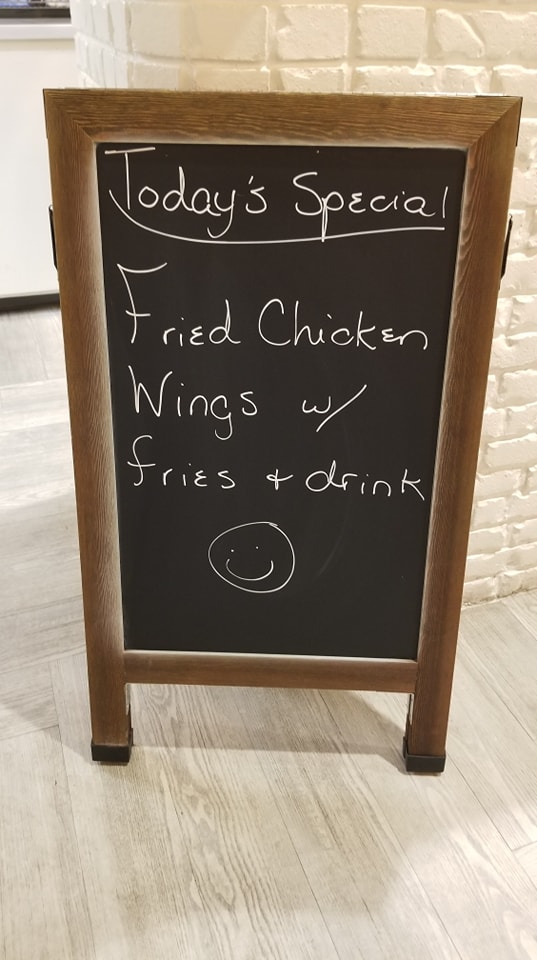 Today's Special
Fried Chicken
Wings w/
fries + drink